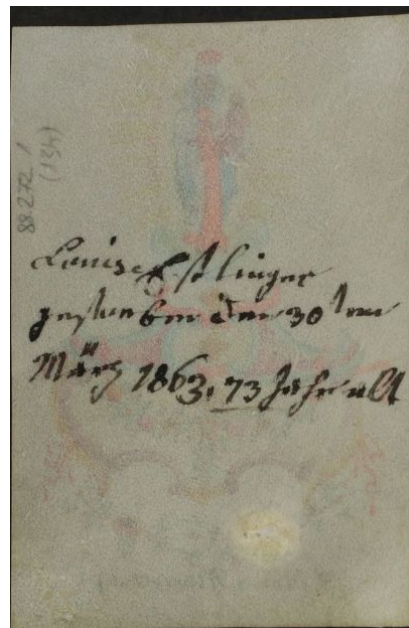 88.272 /
(134)
Louise Estlinger
gestorben den 30 ten
März 1863. 73 Jahr alt